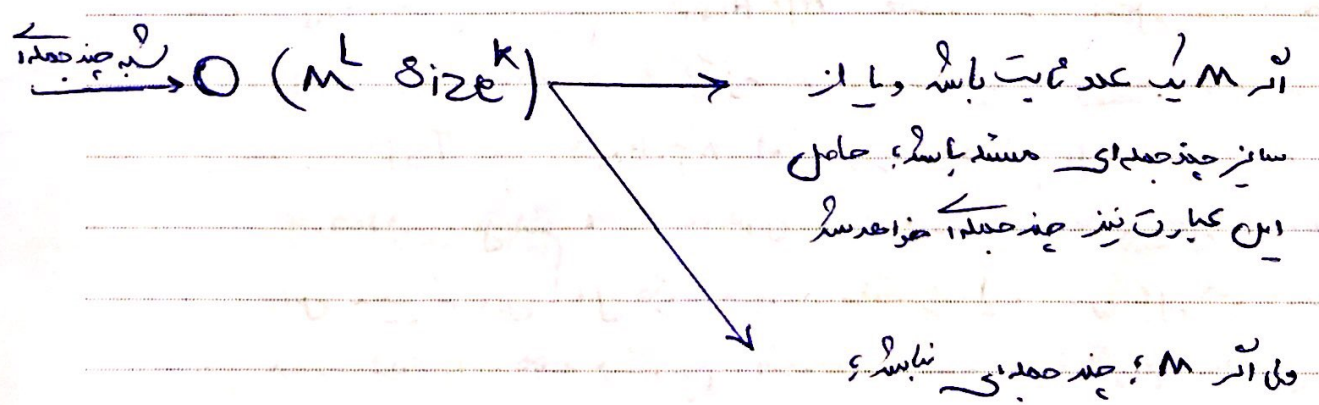 شبه چندجمله‌ای O (M^L Size^k)
اگر M یک عدد ثابت باشد و یا از
سایز چندجمله‌ای مسئله باشد؛ حاصل
این عبارت نیز چندجمله‌ای خواهد شد
ولی اگر M؛ چندجمله‌ای نباشد؛